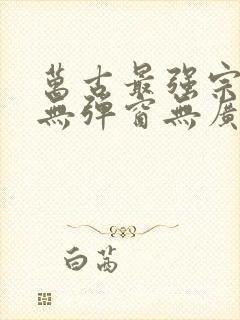 萬古最强宗
無彈窗無廣
白茜